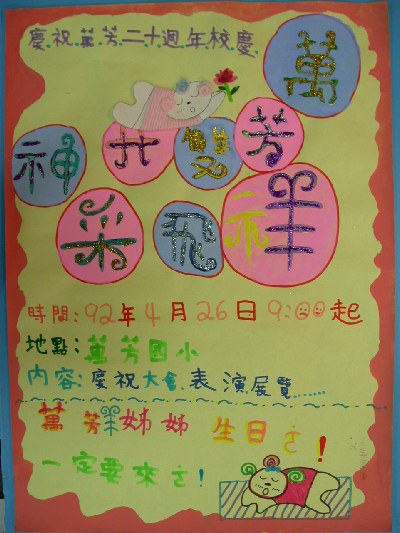 慶祝萬芳二十週年校慶
萬
芳
雙
神
采飛祥
時間:92年4月26日9:00起
地點:萬芳國小
內容:慶祝大會,表演展覽......
萬芳羊姊姊 生日ㄜ!
一定要來ㄜ!